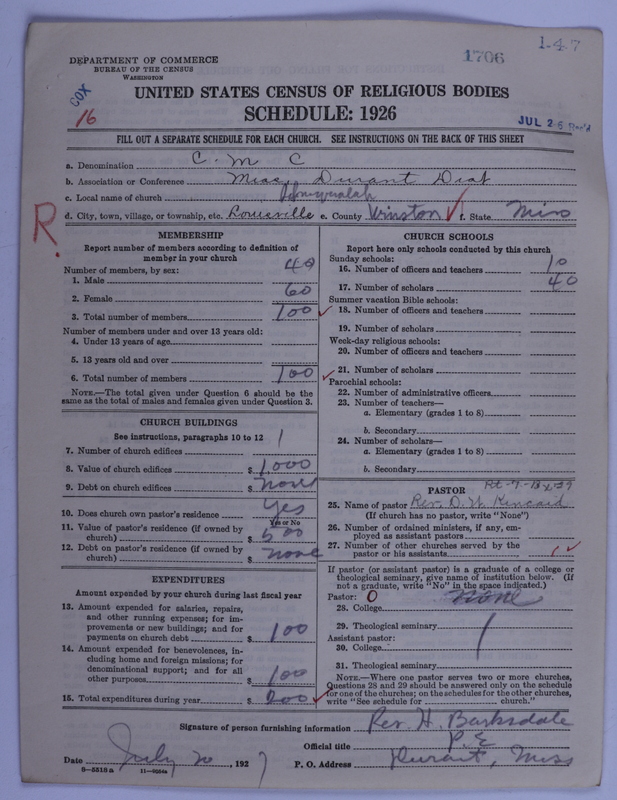 1-4-7
1706
DEPARTMENT OF COMMERCE
BUREAU OF THE CENSUS
WASHINGTON
COX
16
UNITED STATES CENSUS OF RELIGIOUS BODIES
SCHEDULE: 1926
JUL 26 Rec'd
FILL OUT A SEPARATE SCHEDULE FOR EACH CHURCH. SEE INSTRUCTIONS ON THE BACK OF THIS SHEET
a. Denomination C. M C
b. Association or Conference Miss, Durant Dist
c. Local name of church
d. City, town, village, or township, etc. Louisville e. County Winston f. State Miss
R.
MEMBERSHIP
Report number of members according to definition of
member in your church
Number of members, by sex:
1. Male 40
2. Female 60
3. Total number of members 100
Number of members under and over 13 years old:
4. Under 13 years of age
5. 13 years old and over
6. Total number of members 100
NOTE.—The total given under Question 6 should be the
same as the total of males and females given under Question 3.
CHURCH BUILDINGS
See instructions, paragraphs 10 to 12
7. Number of church edifices 1
8. Value of church edifices $ 1,000
9. Debt on church edifices $ none
10. Does church own pastor's residence Yes
Yes or No
11. Value of pastor's residence (if owned by
church) $ 500
12. Debt on pastor's residence (if owned by
church) $ none
EXPENDITURES
Amount expended by your church during last fiscal year
13. Amount expended for salaries, repairs,
and other running expenses; for im-
provements or new buildings; and for
payments on church debt $ 100
14. Amount expended for benevolences, in-
cluding home and foreign missions; for
denominational support; and for all
other purposes $ 100
15. Total expenditures during year $ 200
CHURCH SCHOOLS
Report here only schools conducted by this church
Sunday schools:
16. Number of officers and teachers 10
17. Number of scholars 40
Summer vacation Bible schools:
18. Number of officers and teachers
19. Number of scholars
Week-day religious schools:
20. Number of officers and teachers
21. Number of scholars
Parochial schools:
22. Number of administrative officers
23. Number of teachers—
a. Elementary (grades 1 to 8)
b. Secondary
24. Number of scholars—
a. Elementary (grades 1 to 8)
b. Secondary
PASTOR
25. Name of pastor Rev. D. W. Kincaid
(If church has no pastor, write "None")
26. Number of ordained ministers, if any, em-
ployed as assistant pastors
27. Number of other churches served by the
pastor or his assistants 1
If pastor (or assistant pastor) is a graduate of a college or
theological seminary, give name of institution below. (If
not a graduate, write "No" in the space indicated.)
Pastor: 0 none
28. College
29. Theological seminary
Assistant pastor:
30. College
31. Theological seminary
NOTE.—Where one pastor serves two or more churches,
Questions 28 and 29 should be answered only on the schedule
for one of the churches; on the schedules for the other churches,
write "See schedule for church."
Signature of person furnishing information Rev. H. Barksdale
Official title P. E
Date July 20, 1927 P. O. Address Durant, Miss
8—5518a 11—9054a